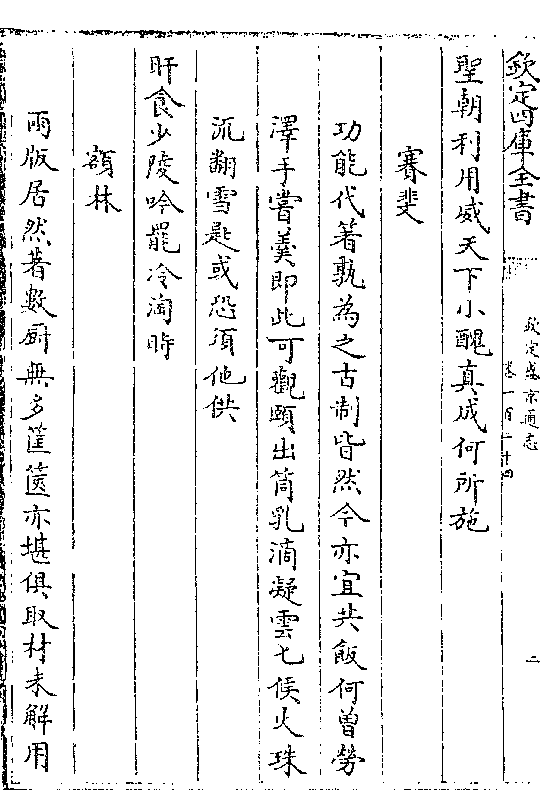 欽定四庫全書
欽定盛京通志
二
聖朝利用威天下小醜真成何所施
賽斐
功能代箸孰為之古制皆然今亦宜共飯何曾勞
澤手嘗羮即此可觀頤出筒乳滴凝雲七候火珠
流翻雪匙或恐須他供
旰食少陵吟罷冷淘時
額林
兩版居然著數厨無多筐篋亦堪俱取材未解用